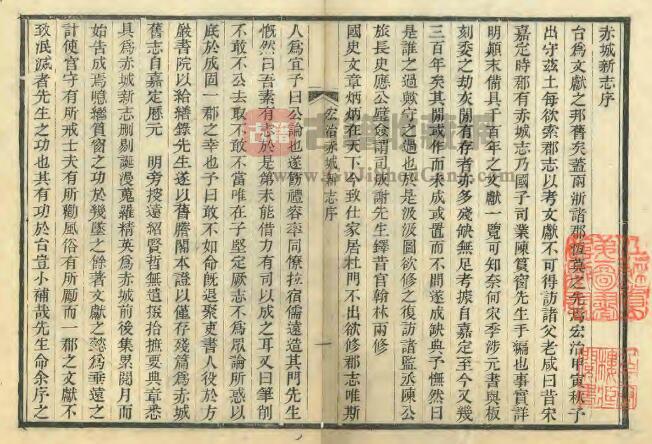 赤城新志序
台為文獻之邦舊矣蓋兩浙諸郡恆莫之先焉宏治甲寅秋予
出守茲土每欲索郡志以考文獻不可得訪諸父老咸曰昔宋
嘉定時郡有赤城志乃國子司業陳篔窗先生手編也事實詳
明顛末備具千百年之文獻一覽可知奈何宋季涉元書與板
刻委之劫灰間有存者亦多殘缺無足考據自嘉定至今又幾
三百年矣其間或作而未成或置而不問遂成缺典予憮然曰
是誰之過歟守之過也於是汲汲圖欲修之復訪諸監丞陳公
旅長史應公壁僉謂司成謝先生鐸昔官翰林兩修
國史文章炳炳在天下今致仕家居杜門不出欲修郡志唯斯
宏治赤城新志序
一
人為宜予曰公論也遂飭禮容率同僚拉宿儒遠造其門先生
慨然曰吾素有志於是第未能借力有司以成之耳又曰筆削
不敢不公去取不敢不當唯在子堅定厥志不為眾論所惑以
底於成固一郡之幸也予曰敢不如命既退聚吏書人役於方
嚴書院以給繕錄先生遂以舊謄閣本證以僅存殘篇為赤城
舊志自嘉定歷元 明旁搜遠紹賢哲無遺掇拾摭要典章悉
具為赤城新志刪剔誕漫蒐羅精英為赤城前後集累閱月而
始告成焉噫繼篔窗之功於幾墜之餘著文獻之懿為垂遠之
計使官守有所戒士夫有所勸風俗有所勵而一郡之文獻不
致泯滅者先生之功也其有功於台豈小補哉先生命余序之
古籍
www.JiuShouCang.com